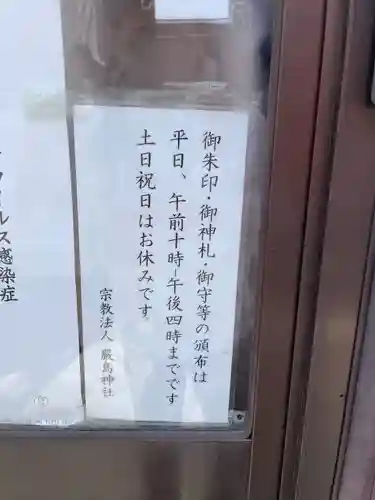 御朱印・御神札・御守等の頒布は
平日、午前十時-午後四時までです
土日祝日はお休みです。
宗教法人 厳島神社
ルス感染症